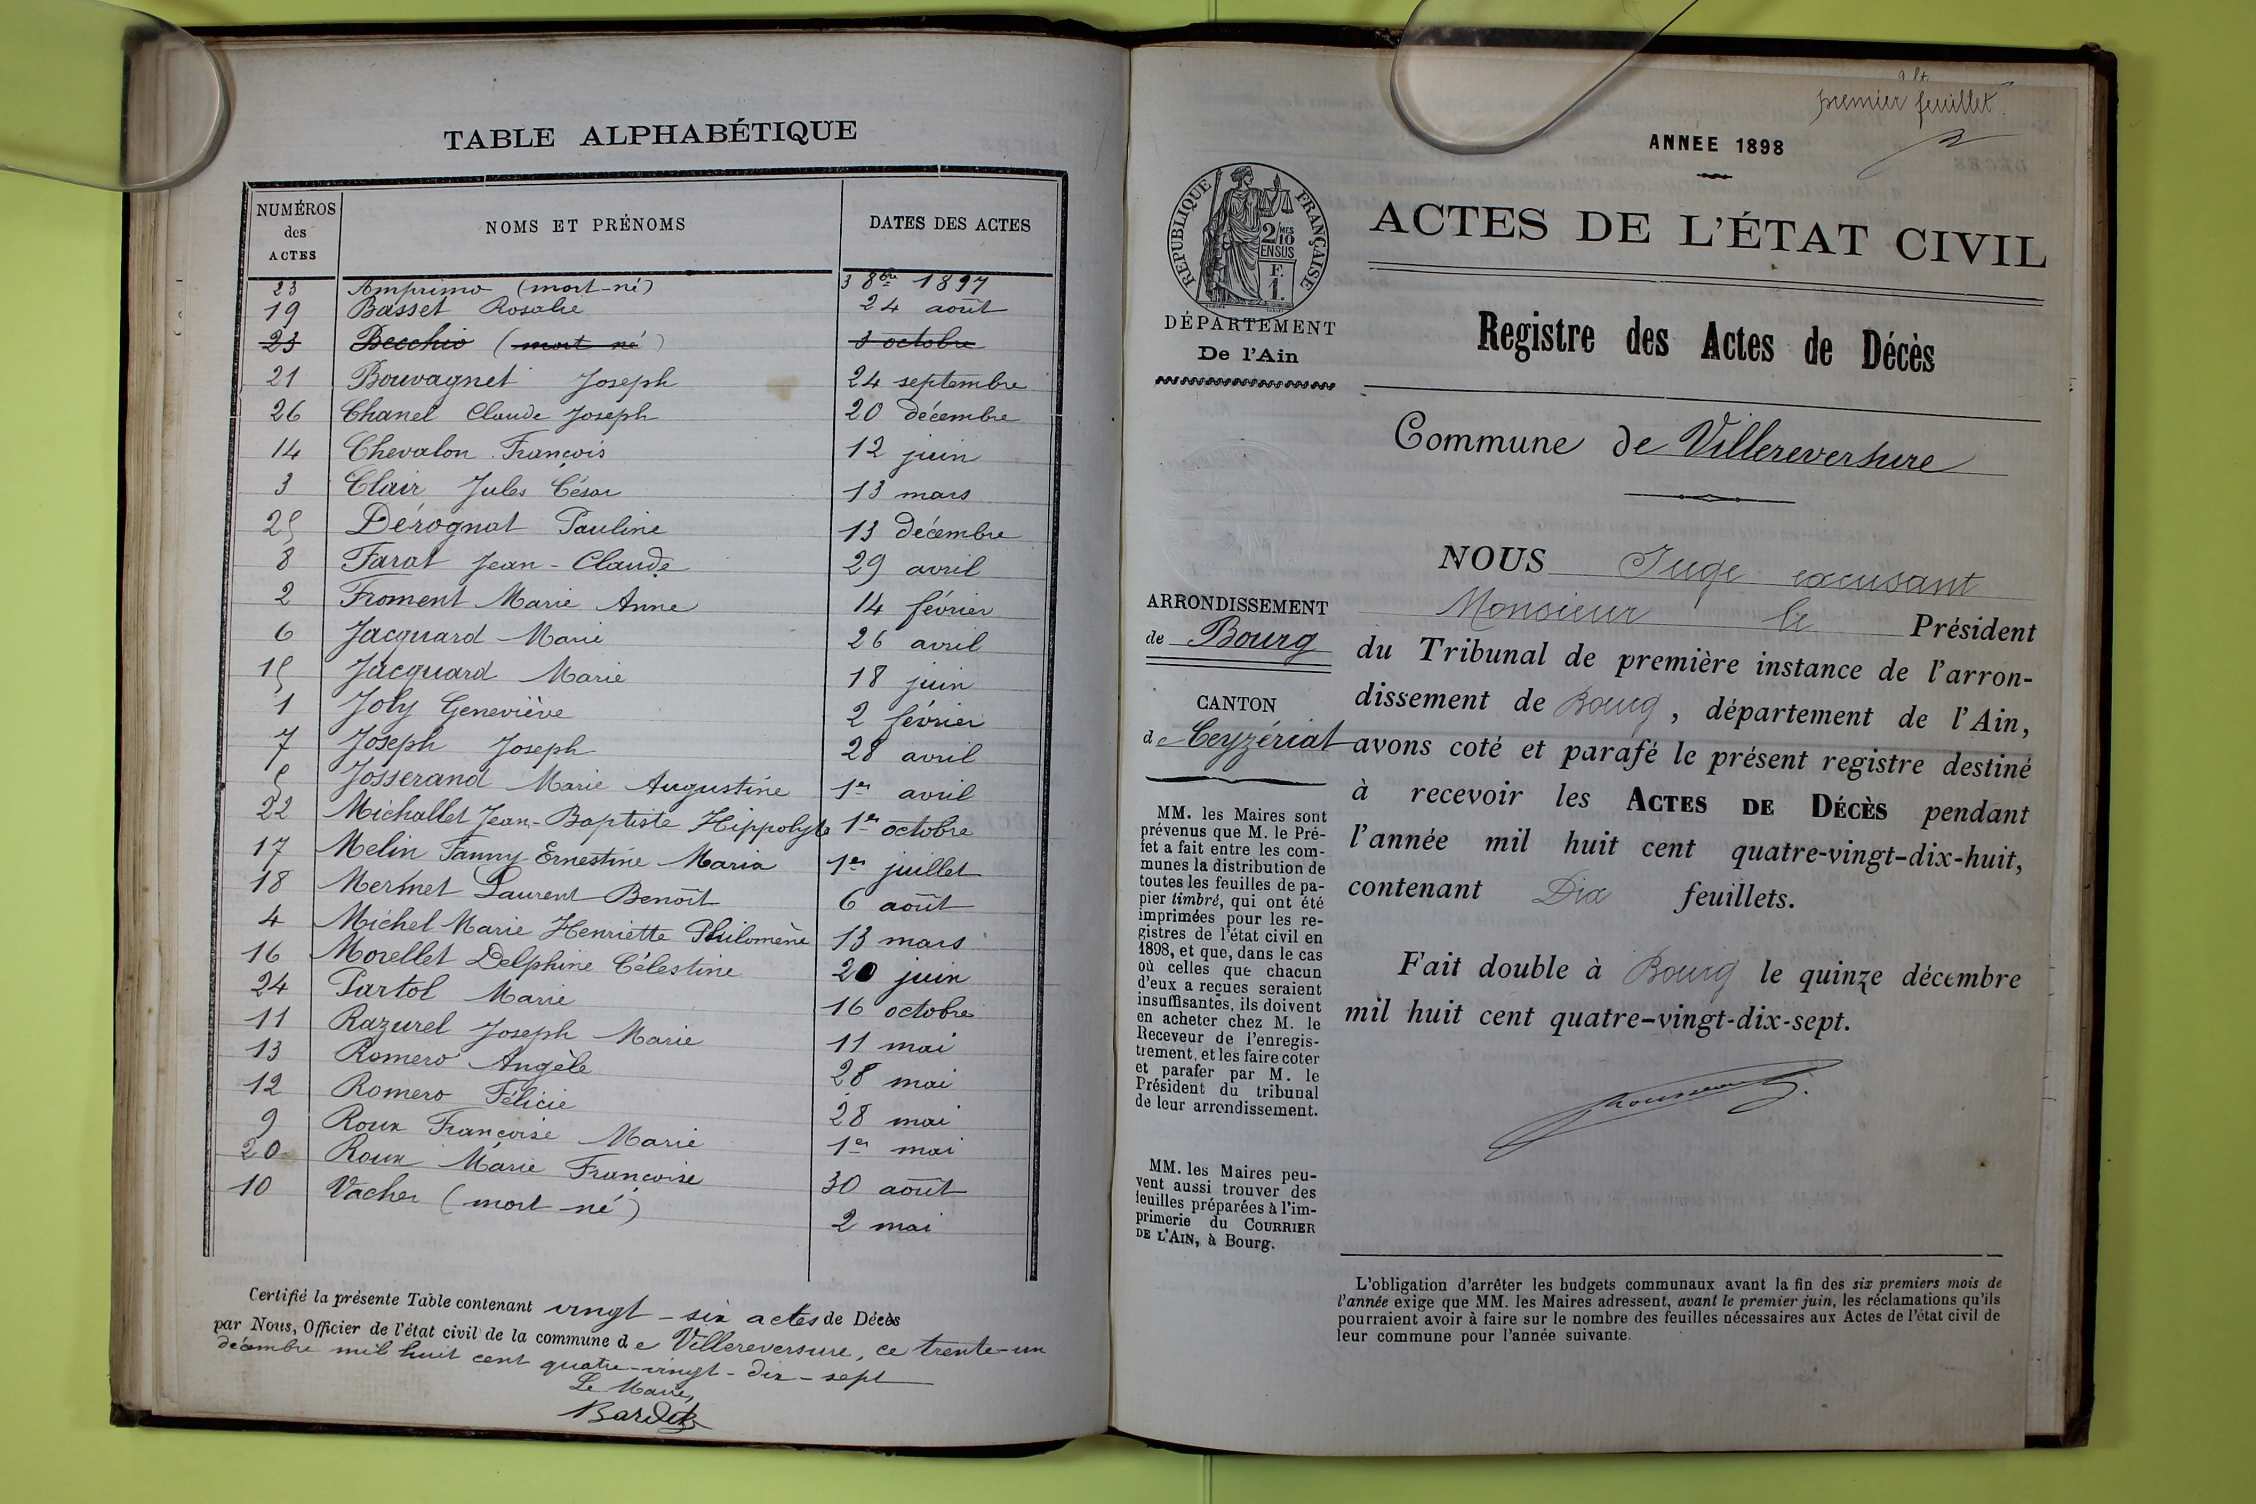 TABLE ALPHABÉTIQUE
NUMÉROS des ACTES | NOMS ET PRÉNOMS | DATES DES ACTES
23 Amprimo (mort-né) 3 8bre 1897
19 Basset Rosalie 24 août
23 Becchio (mort né) 3 octobre
21 Bouvagnet Joseph 24 septembre
26 Chanel Claude Joseph 20 décembre
14 Chevalon François 12 juin
3 Clair Jules César 13 mars
25 Dérognat Pauline 13 décembre
8 Farat Jean-Claude 29 avril
2 Froment Marie Anne 14 février
6 Jacquard Marie 26 avril
15 Jacquard Marie 18 juin
1 Joly Geneviève 2 février
7 Joseph Joseph 28 avril
5 Josserand Marie Augustine 1er avril
22 Michallet Jean-Baptiste Hippolyte 1er octobre
17 Melin Fanny Ernestine Maria 1er juillet
18 Mermet Laurent Benoît 6 août
4 Michel Marie Henriette Philomène 13 mars
16 Morellet Delphine Célestine 20 juin
24 Partol Marie 16 octobre
11 Razurel Joseph Marie 11 mai
13 Romero Angèle 28 mai
12 Romero Félicie 28 mai
9 Roux Françoise Marie 1er mai
20 Roux Marie Françoise 30 août
10 Vacher (mort-né) 2 mai
Certifié la présente Table contenant vingt-six actes de Décès
par Nous, Officier de l'état civil de la commune de Villereversure, ce trente-un
décembre mil huit cent quatre-vingt-dix-sept
Le Maire,
premier feuillet.
ANNEE 1898
ACTES DE L'ÉTAT CIVIL
RÉPUBLIQUE FRANÇAISE
2/10 MES
EN SUS
F.
1.
DÉPARTEMENT
De l'Ain
Registre des Actes de Décès
Commune de Villereversure
ARRONDISSEMENT
de Bourg
CANTON
de Ceyzériat
MM. les Maires sont
prévenus que M. le Pré-
fet a fait entre les com-
munes la distribution de
toutes les feuilles de pa-
pier timbré, qui ont été
imprimées pour les re-
gistres de l'état civil en
1898, et que, dans le cas
où celles que chacun
d'eux a reçues seraient
insuffisantes, ils doivent
en acheter chez M. le
Receveur de l'enregis-
trement, et les faire coter
et parafer par M. le
Président du tribunal
de leur arrondissement.
MM. les Maires peu-
vent aussi trouver des
feuilles préparées à l'im-
primerie du COURRIER
DE L'AIN, à Bourg.
NOUS Juge excusant
Monsieur le Président
du Tribunal de première instance de l'arron-
dissement de Bourg, département de l'Ain,
avons coté et parafé le présent registre destiné
à recevoir les ACTES DE DÉCÈS pendant
l'année mil huit cent quatre-vingt-dix-huit,
contenant Dix feuillets.
Fait double à Bourg le quinze décembre
mil huit cent quatre-vingt-dix-sept.
L'obligation d'arrêter les budgets communaux avant la fin des six premiers mois de
l'année exige que MM. les Maires adressent, avant le premier juin, les réclamations qu'ils
pourraient avoir à faire sur le nombre des feuilles nécessaires aux Actes de l'état civil de
leur commune pour l'année suivante.